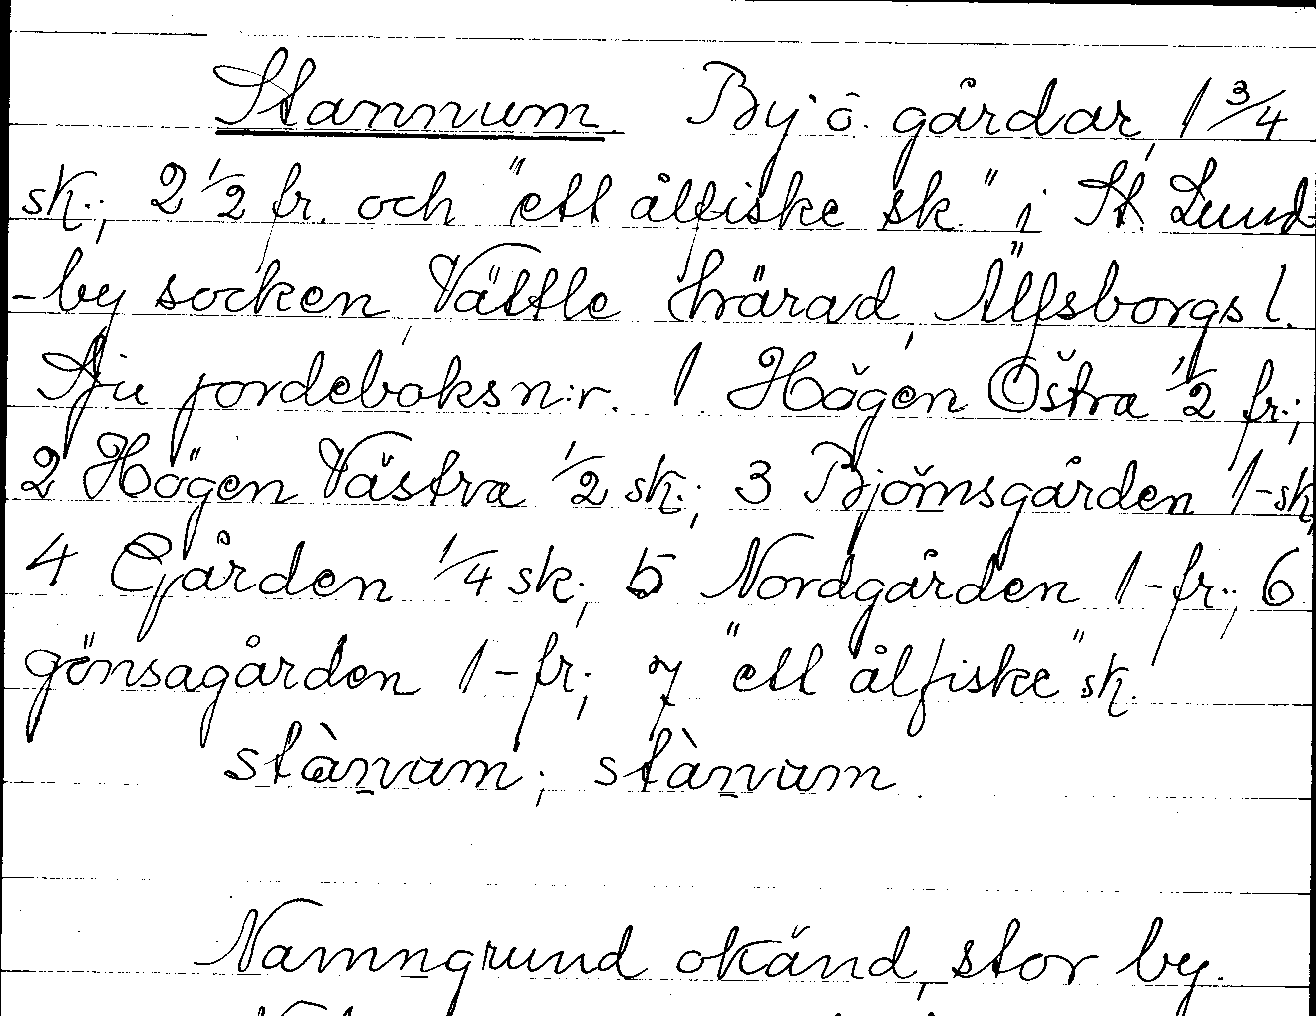 Stannum. By o. gårdar, 1 3/4
sk.; 2 1/2 fr. och "ett ålfiske sk." i St. Lund-
-by socken, Vättle härad, Älfsborgs l.
Sju jordeboksn:r. 1 Högen Östra 1/2 fr.;
2 Högen Västra 1/2 sk.; 3 Björnsgården 1-sk,
4 Gården 1/4 sk.; 5 Nordgården 1-fr.; 6
gönsagården 1-fr; 7 "ett ålfiske" sk.
stànum; stànum.
Namngrund okänd, stor by.